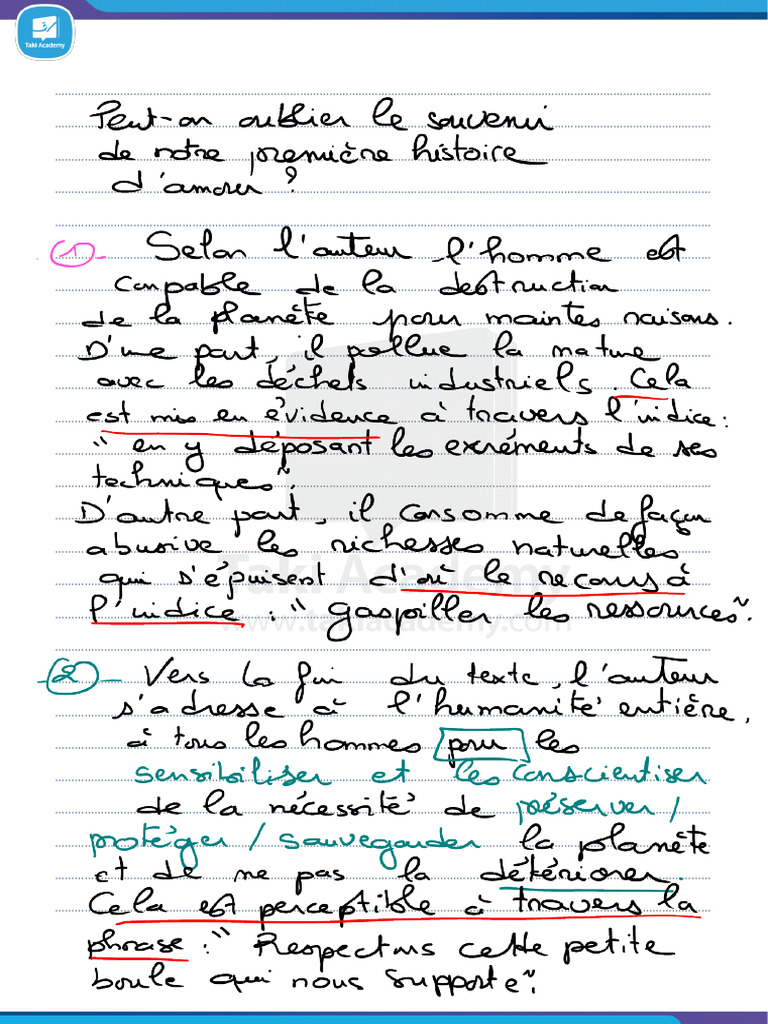 Taki Academy
Peut-on oublier le souvenir
de notre première histoire
d'amour ?
(1)- Selon l'auteur l'homme est
coupable de la destruction
de la planète pour maintes raisons.
D'une part, il pollue la nature
avec les déchets industriels. Cela
est mis en évidence à travers l'indice :
" en y déposant les exréments de ses
techniques".
D'autre part, il consomme de façon
abusive les richesses naturelles
qui s'épuisent d'où le recours à
l'indice : " gaspiller les ressources".
Taki Academy
www.takiacademy.com
-(2)- Vers la fin du texte, l'auteur
s'adresse à l'humanité entière,
à tous les hommes pour les
sensibiliser et les conscientiser
de la nécessité de préserver /
protéger / sauvegarder la planète
et de ne pas la détériorer.
Cela est perceptible à travers la
phrase : " Respectons cette petite
boule qui nous supporte".